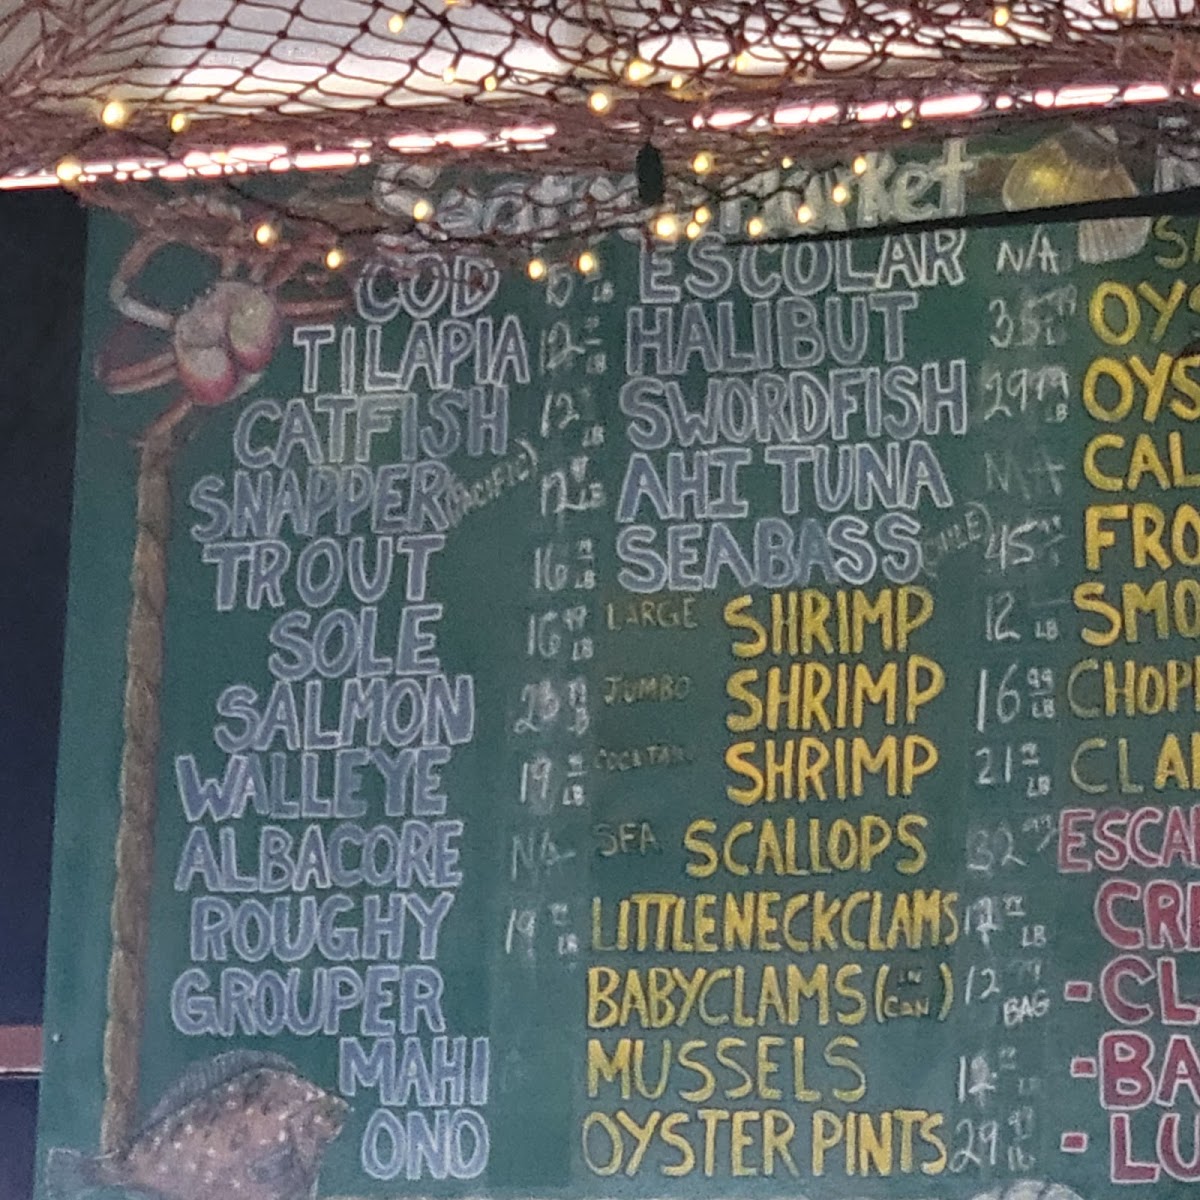 Seafood Market
COD LB
TILAPIA 12 LB
CATFISH 12 LB
SNAPPER (PACIFIC) 12 LB
TROUT 16 LB
SOLE 16 99 LB
SALMON LB
WALLEYE 19 LB
ALBACORE N/A
ROUGHY 19 LB
GROUPER
MAHI
ONO
ESCOLAR N/A
HALIBUT
SWORDFISH 29 99 LB
AHI TUNA
SEABASS (CHILE) 45
LARGE SHRIMP 12 LB
JUMBO SHRIMP 16 99 LB
COCKTAIL SHRIMP 21 LB
SEA SCALLOPS 32 99
LITTLENECK CLAMS LB
BABY CLAMS (IN CAN) 12 BAG
MUSSELS
OYSTER PINTS 29
OYS
OYS
CAL
FRO
SMO
CHOP
CLA
ESCA
CR
-CL
-BA
-LU